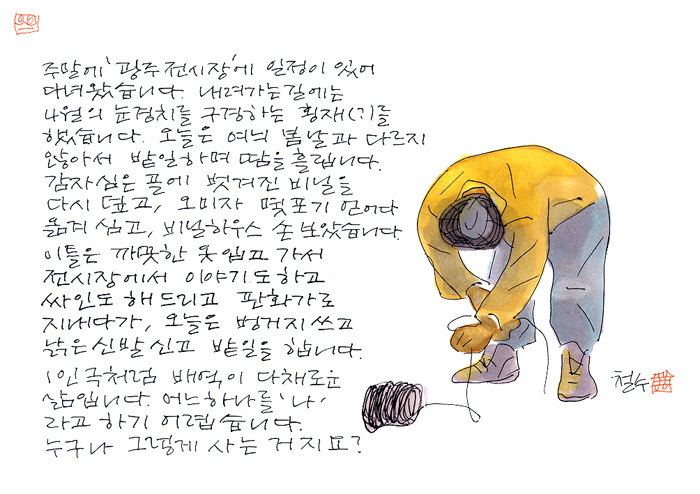 주말에 '광주전시장'에 일정이 있어
다녀왔습니다. 내려가는길에는
4월의 눈경치를 구경하는 횡재(?)를
했습니다. 오늘은 여늬 봄날과 다르지
않아서 밭일하며 땀을 흘립니다.
감자심은 골에 벗겨진 비닐을
다시 덮고, 오미자 몇포기 얻어다
옮겨 심고, 비닐하우스 손 보았습니다.
이틀은 깨끗한 옷 입고 가서
전시장에서 이야기도 하고
싸인도 해드리고 판화가로
지내다가, 오늘은 벙거지 쓰고
낡은 신발 신고 밭일을 합니다.
1인극처럼 배역이 다채로운
삶입니다. 어느하나를 '나'
라고 하기 어렵습니다.
누구나 그렇게 사는 거지요?
철수